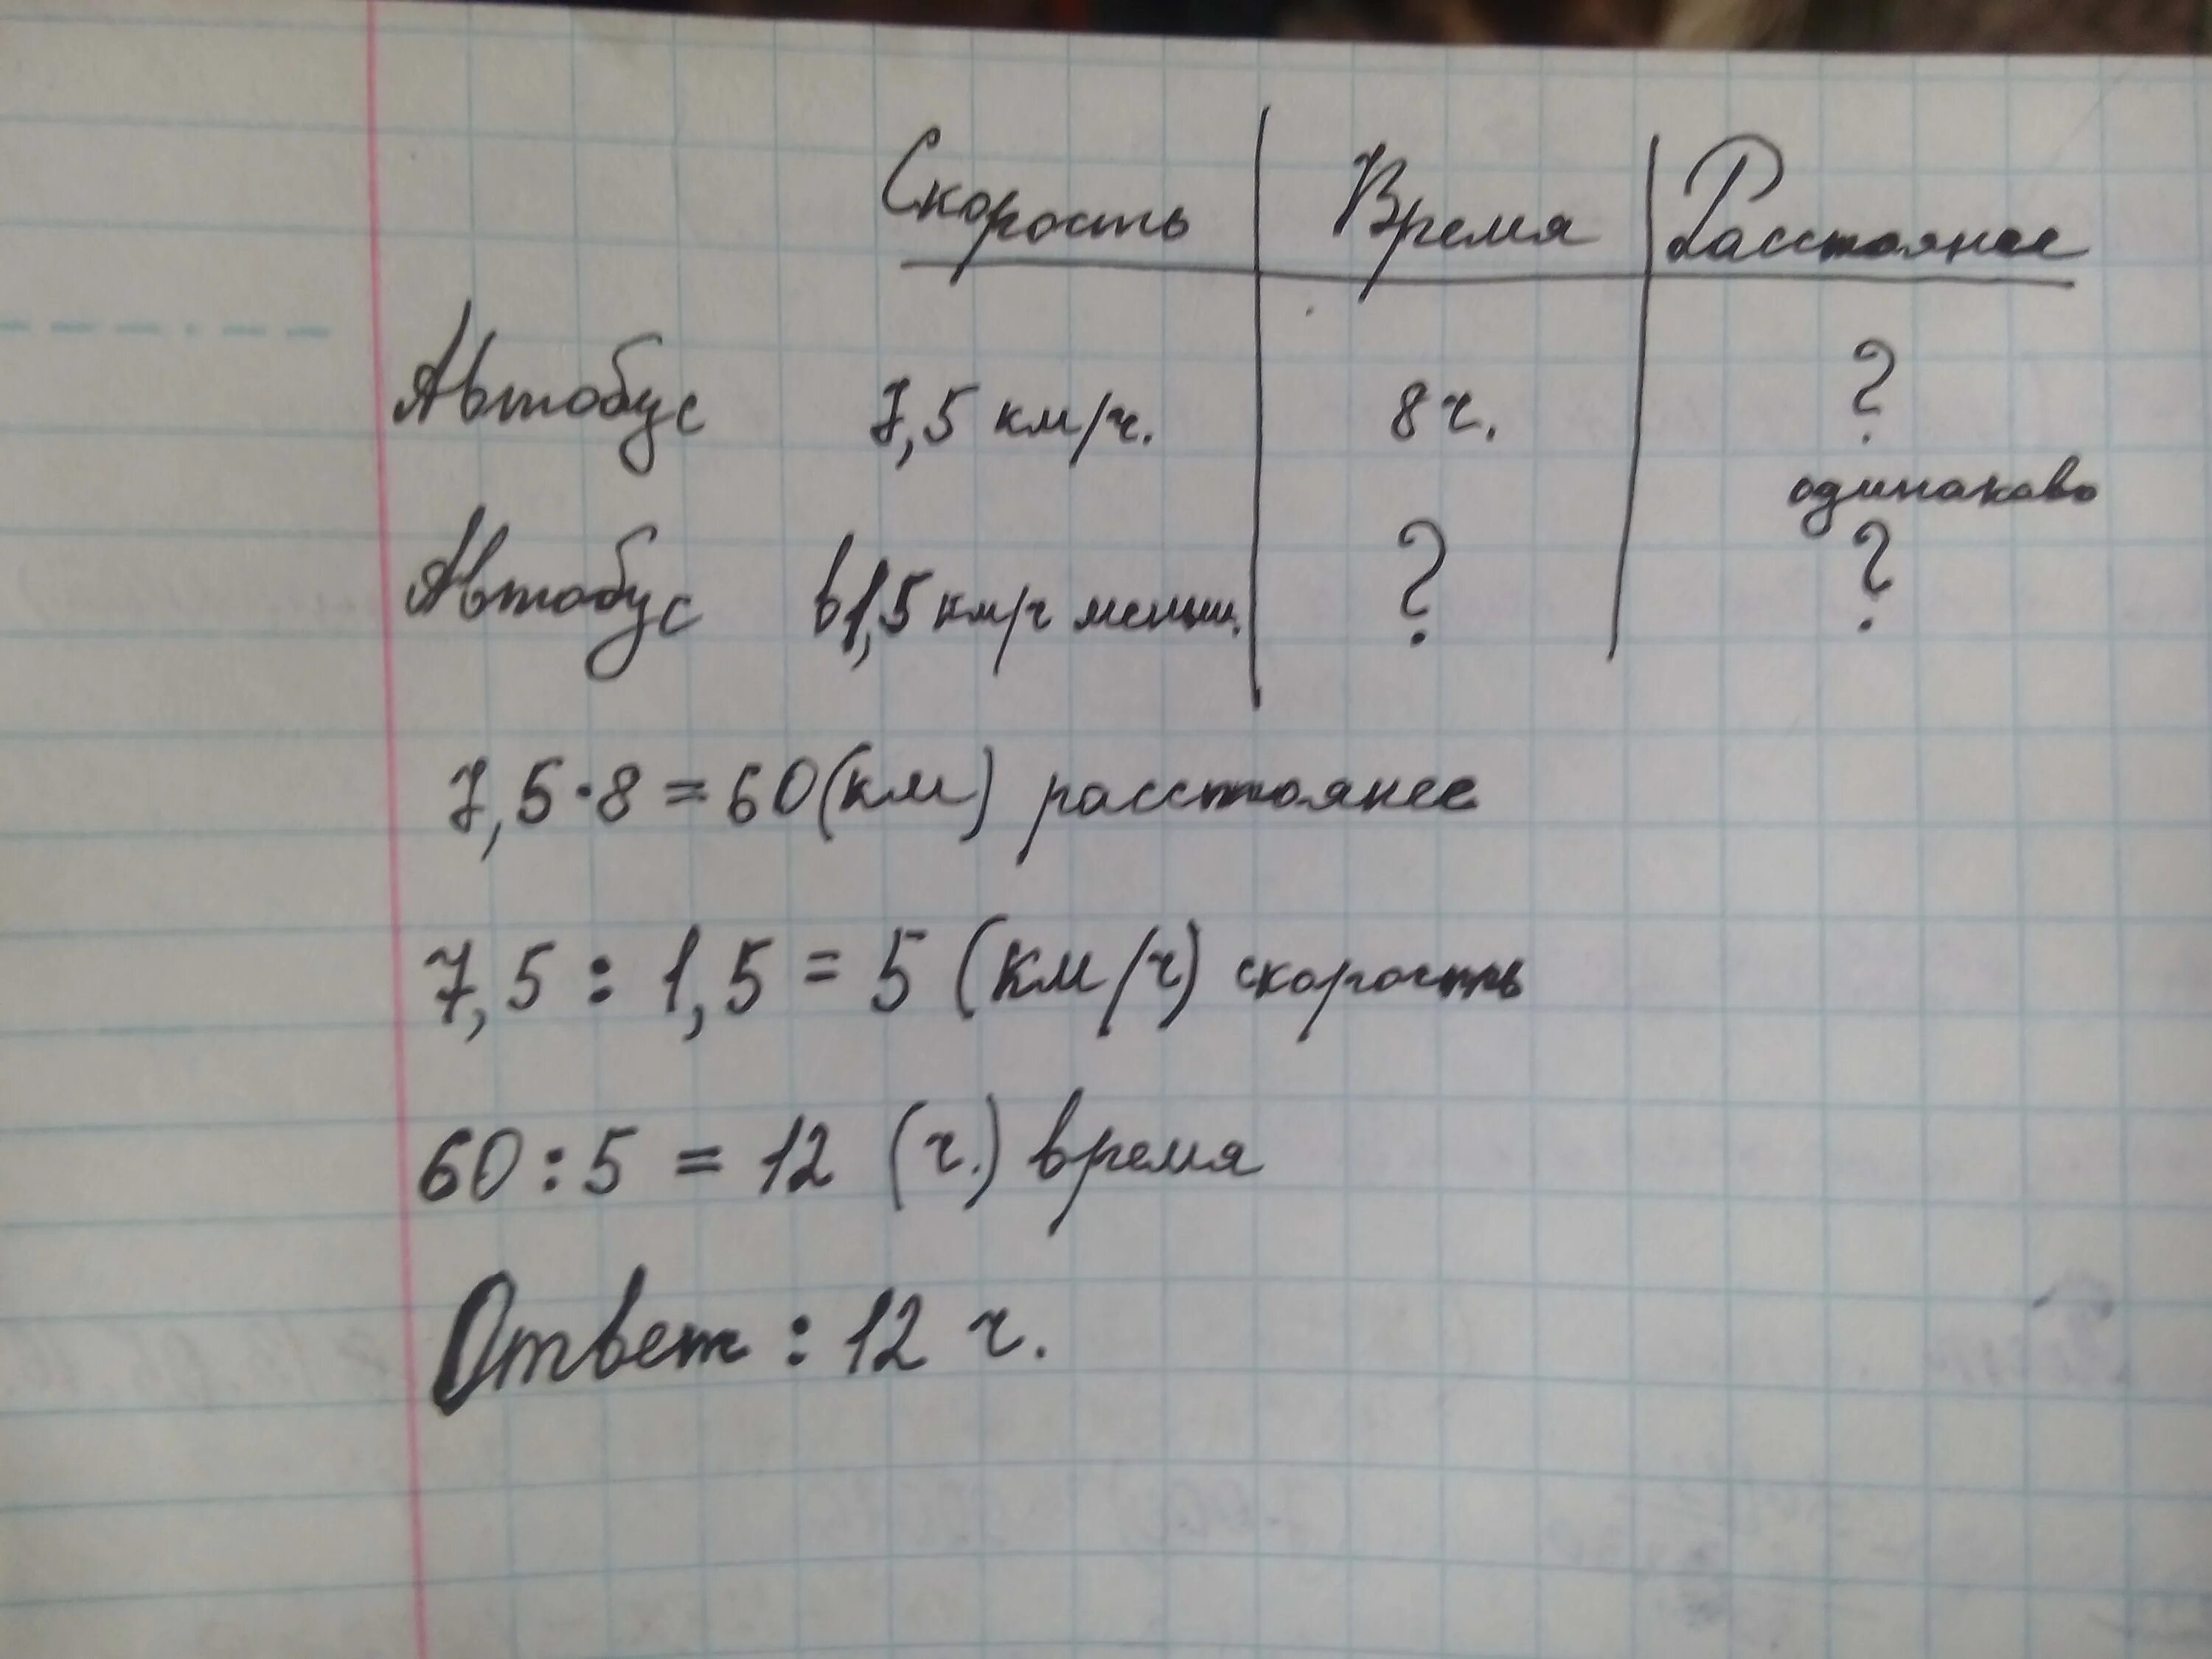 Скорость Время Расстоянее
Автобус 7,5 км/ч. 8 ч. ?
одинаково
Автобус в 1,5 км/ч меньш. ? ?
7,5 · 8 = 60 (км) расстоянее
7,5 : 1,5 = 5 (км/ч) скорость
60 : 5 = 12 (ч.) время
Ответ : 12 ч.